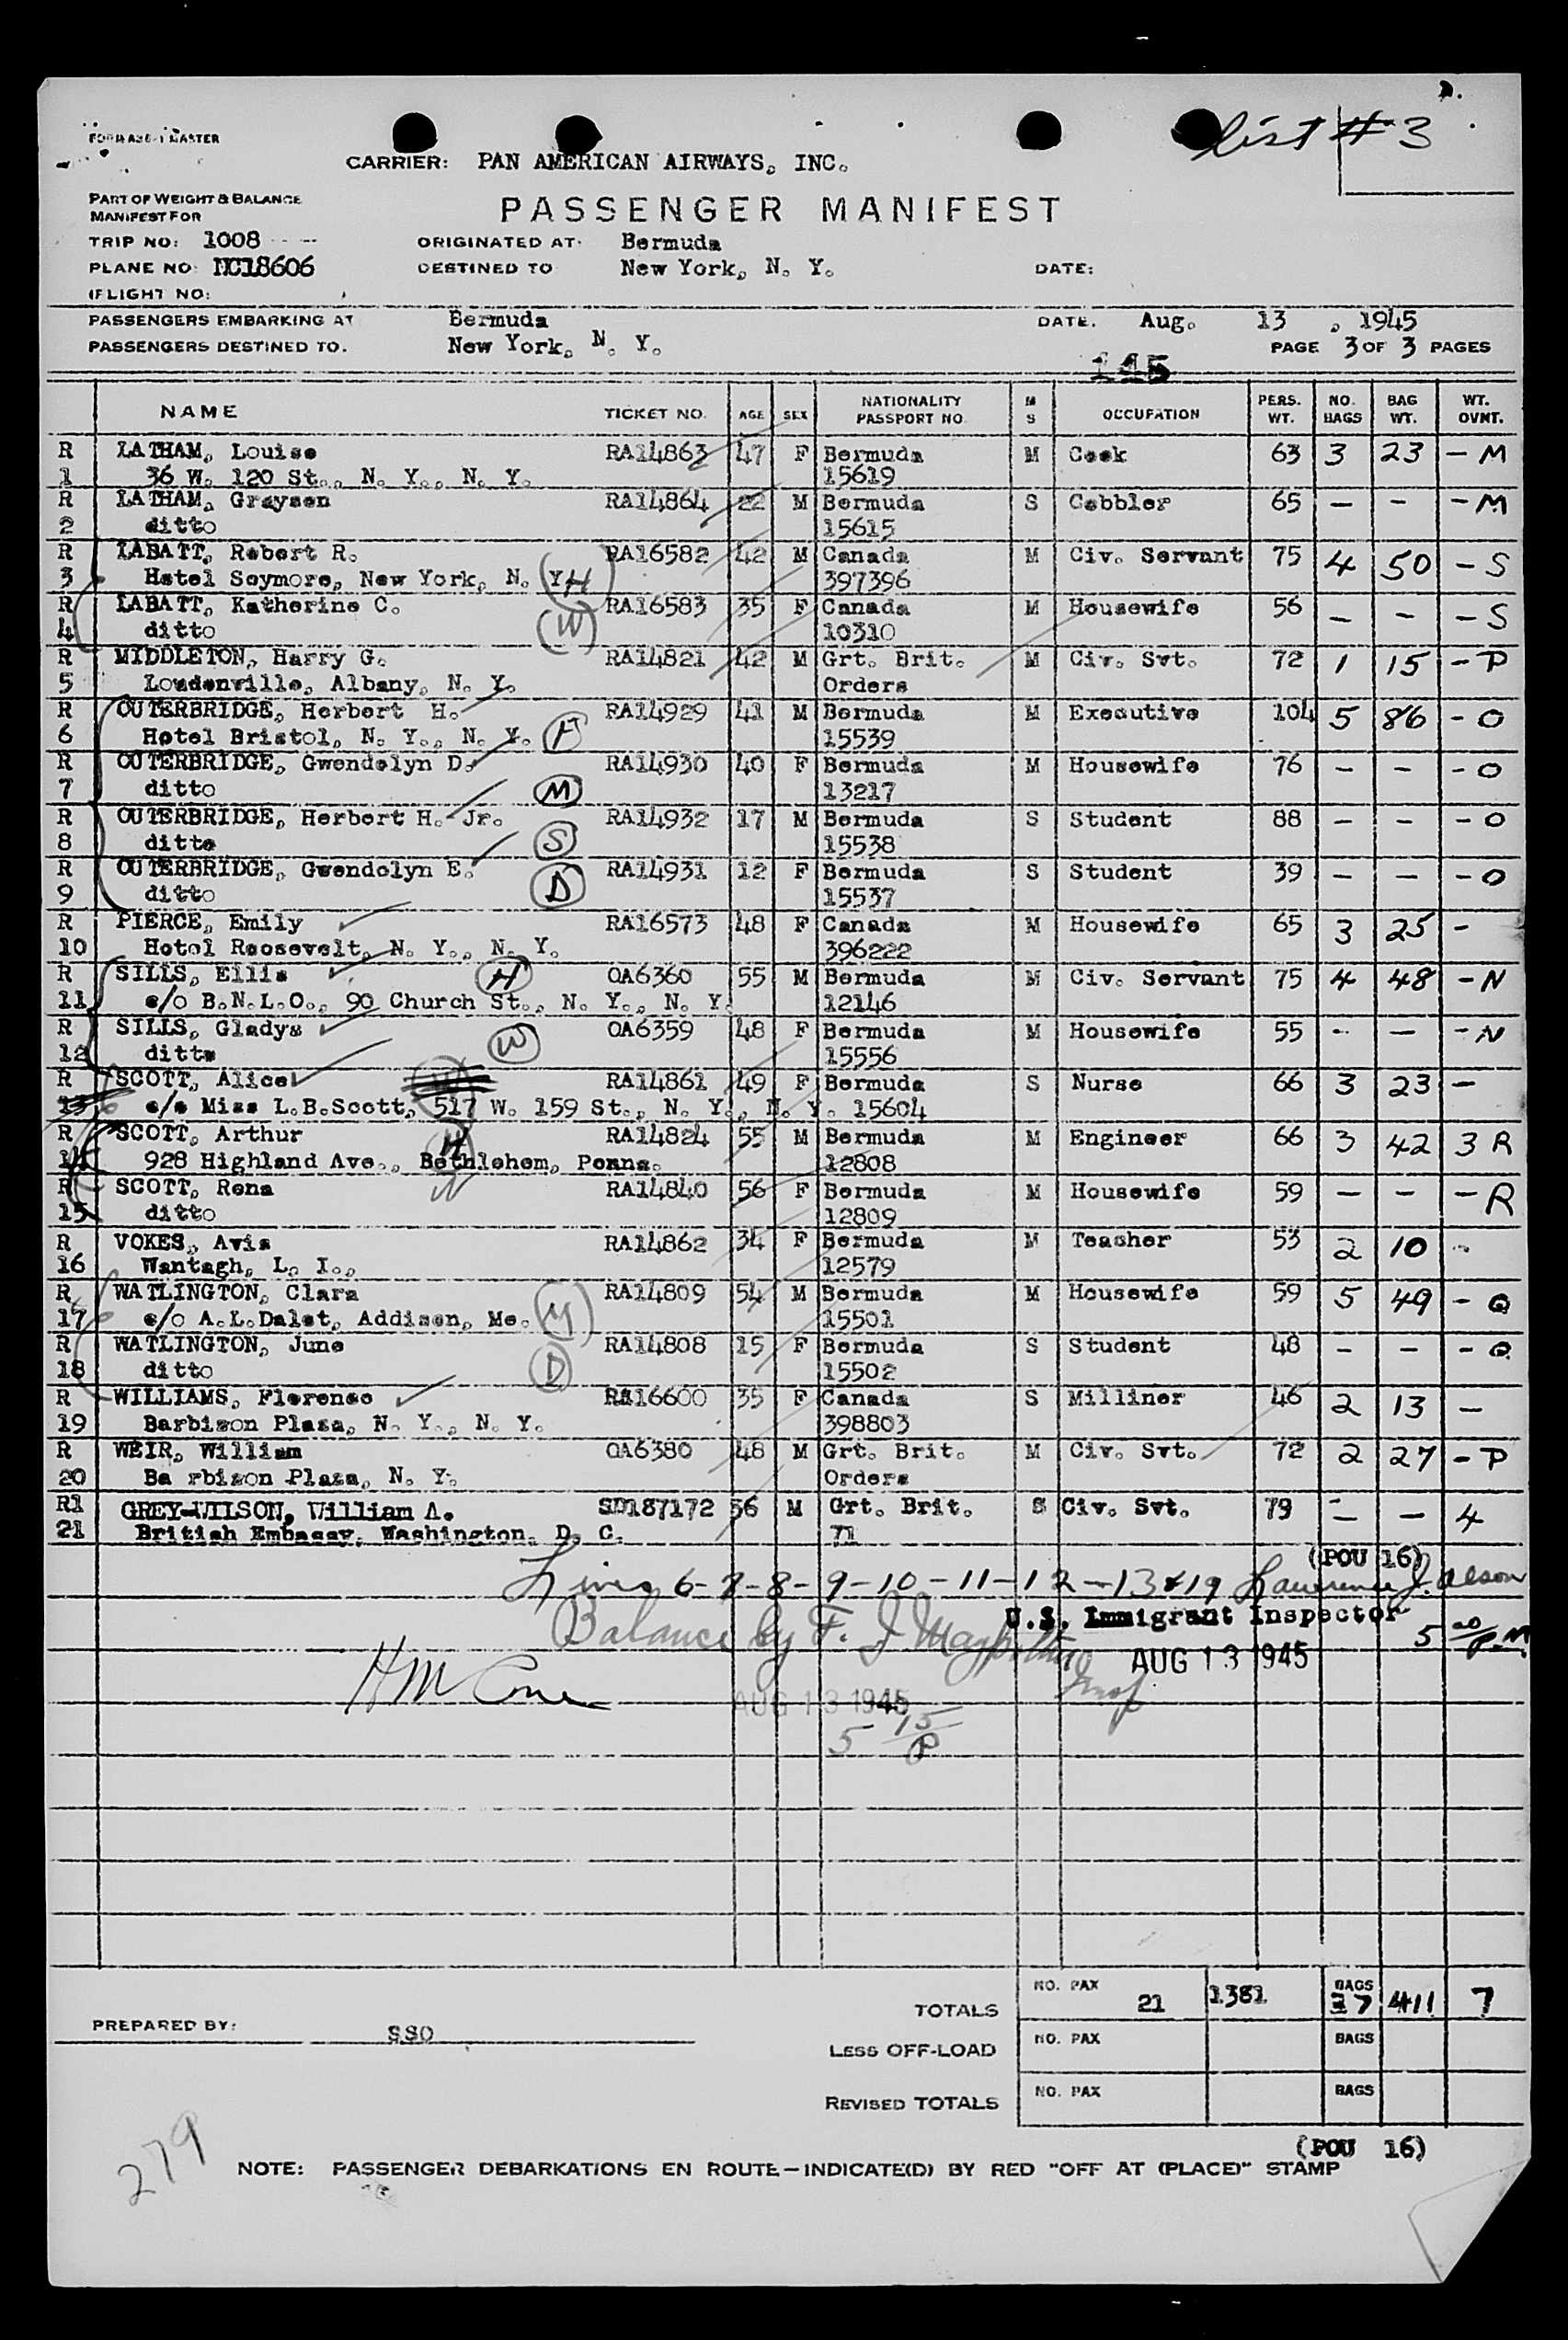 List # 3
CARRIER: PAN AMERICAN AIRWAYS, INC.
PART OF WEIGHT & BALANCE
MANIFEST FOR
PASSENGER MANIFEST
TRIP NO: 1008 ORIGINATED AT: Bermuda
PLANE NO: NC18606 DESTINED TO New York, N. Y. DATE:
(FLIGHT NO:
PASSENGERS EMBARKING AT Bermuda DATE. Aug. 13, 1945
PASSENGERS DESTINED TO. New York, N. Y. PAGE 3 OF 3 PAGES
145
NAME TICKET NO. AGE SEX NATIONALITY PASSPORT NO. M S OCCUPATION PERS. WT. NO. BAGS BAG WT. WT. OVNT.
R LATHAM, Louise RA14863 47 F Bermuda M Cook 63 3 23 - M
1 36 W. 120 St., N. Y., N. Y. 15619
R LATHAM, Graysen RA14864 22 M Bermuda S Cobbler 65 - - - M
2 ditto 15615
R LABATT, Robert R. RA16582 42 M Canada M Civ. Servant 75 4 50 - S
3 Hotel Seymore, New York, N. Y. (H) 397396
R LABATT, Katherine C. RA16583 35 F Canada M Housewife 56 - - - S
4 ditto (W) 10310
R MIDDLETON, Harry G. RA14821 42 M Grt. Brit. M Civ. Svt. 72 1 15 - P
5 Loudonville, Albany, N. Y. Orders
R OUTERBRIDGE, Herbert H. RA14929 41 M Bermuda M Executive 104 5 86 - O
6 Hotel Bristol, N. Y., N. Y. (F) 15539
R OUTERBRIDGE, Gwendolyn D. RA14930 40 F Bermuda M Housewife 76 - - - O
7 ditto (M) 13217
R OUTERBRIDGE, Herbert H. Jr. RA14932 17 M Bermuda S Student 88 - - - O
8 ditto (S) 15538
R OUTERBRIDGE, Gwendolyn E. RA14931 12 F Bermuda S Student 39 - - - O
9 ditto (D) 15537
R PIERCE, Emily RA16573 48 F Canada M Housewife 65 3 25 -
10 Hotel Roosevelt, N. Y., N. Y. 396222
R SILLS, Ellis (H) OA6360 55 M Bermuda M Civ. Servant 75 4 48 - N
11 c/o B.N.L.O., 90 Church St., N. Y., N. Y. 12146
R SILLS, Gladys (W) OA6359 48 F Bermuda M Housewife 55 - - - N
12 ditto 15556
R SCOTT, Alice RA14861 49 F Bermuda S Nurse 66 3 23 -
13 c/o Miss L.B.Scott, 517 W. 159 St., N. Y., N. Y. 15604
R SCOTT, Arthur (H) RA14824 55 M Bermuda M Engineer 66 3 42 3 R
14 928 Highland Ave., Bethlehem, Penna. 12808
R SCOTT, Rena W RA14840 56 F Bermuda M Housewife 59 - - - R
15 ditto 12809
R VOKES, Avis RA14862 34 F Bermuda M Teacher 53 2 10 -
16 Wantagh, L. I., 12579
R WATLINGTON, Clara RA14809 54 M Bermuda M Housewife 59 5 49 - Q
17 c/o A.L.Dalet, Addison, Me. (M) 15501
R WATLINGTON, June RA14808 15 F Bermuda S Student 48 - - - Q
18 ditto (D) 15502
R WILLIAMS, Florence RA16600 35 F Canada S Milliner 46 2 13 -
19 Barbizon Plaza, N. Y., N. Y. 398803
R WEIR, William OA6380 48 M Grt. Brit. M Civ. Svt. 72 2 27 - P
20 Ba rbizon Plaza, N. Y. Orders
R1 GREY-WILSON, William A. SD187172 56 M Grt. Brit. S Civ. Svt. 79 - - 4
21 British Embassy, Washington, D. C. 71
(POU 16)
Lines 6-7-8-9-10-11-12-13 & 19 Lawrence J. Olson
Balance by F. J. U.S. Immigrant Inspector 5 20/P.M
AUG 13 1945
Insp.
AUG 13 1945
5 15/P
TOTALS NO. PAX 21 1381 BAGS 37 411 7
PREPARED BY: SSO
LESS OFF-LOAD NO. PAX BAGS
REVISED TOTALS NO. PAX BAGS
(POU 16)
279
NOTE: PASSENGER DEBARKATIONS EN ROUTE—INDICATE(D) BY RED "OFF AT (PLACE)" STAMP